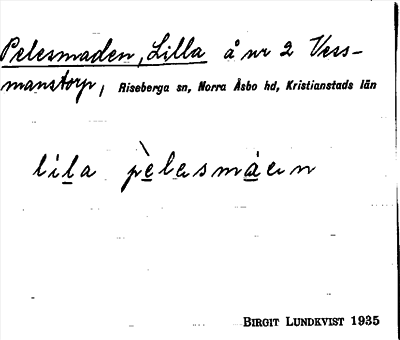 Pelesmaden, Lilla å nr 2 Vess-
manstorp, Riseberga sn, Norra Åsbo hd, Kristianstads län
lila pèlesmáen
BIRGIT LUNDKVIST 1935